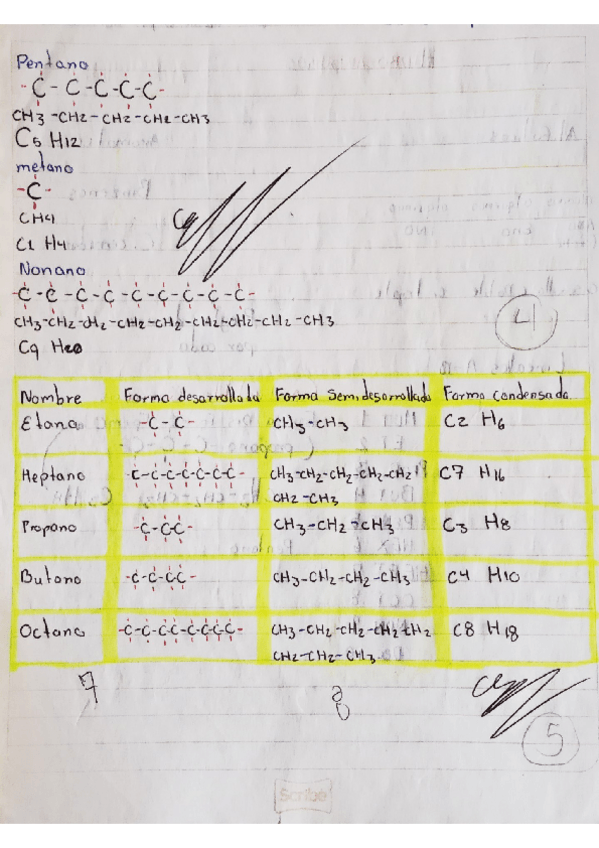 Pentano
-C-C-C-C-C-
CH3-CH2-CH2-CH2-CH3
C5 H12
metano
-C-
CH4
C1 H4
Nonano
-C-C-C-C-C-C-C-C-C-
CH3-CH2-CH2-CH2-CH2-CH2-CH2-CH2-CH3
C9 H20
4
Nombre Forma desarrollada Forma Semidesarrollada Forma Condensada
Etano -C-C- CH3-CH3 C2 H6
Heptano -C-C-C-C-C-C-C- CH3-CH2-CH2-CH2-CH2
CH2-CH3 C7 H16
Propano -C-C-C- CH3-CH2-CH3 C3 H8
Butano -C-C-C-C- CH3-CH2-CH2-CH3 C4 H10
Octano -C-C-C-C-C-C-C-C- CH3-CH2-CH2-CH2-CH2
CH2-CH2-CH3 C8 H18
7
5
Scribe